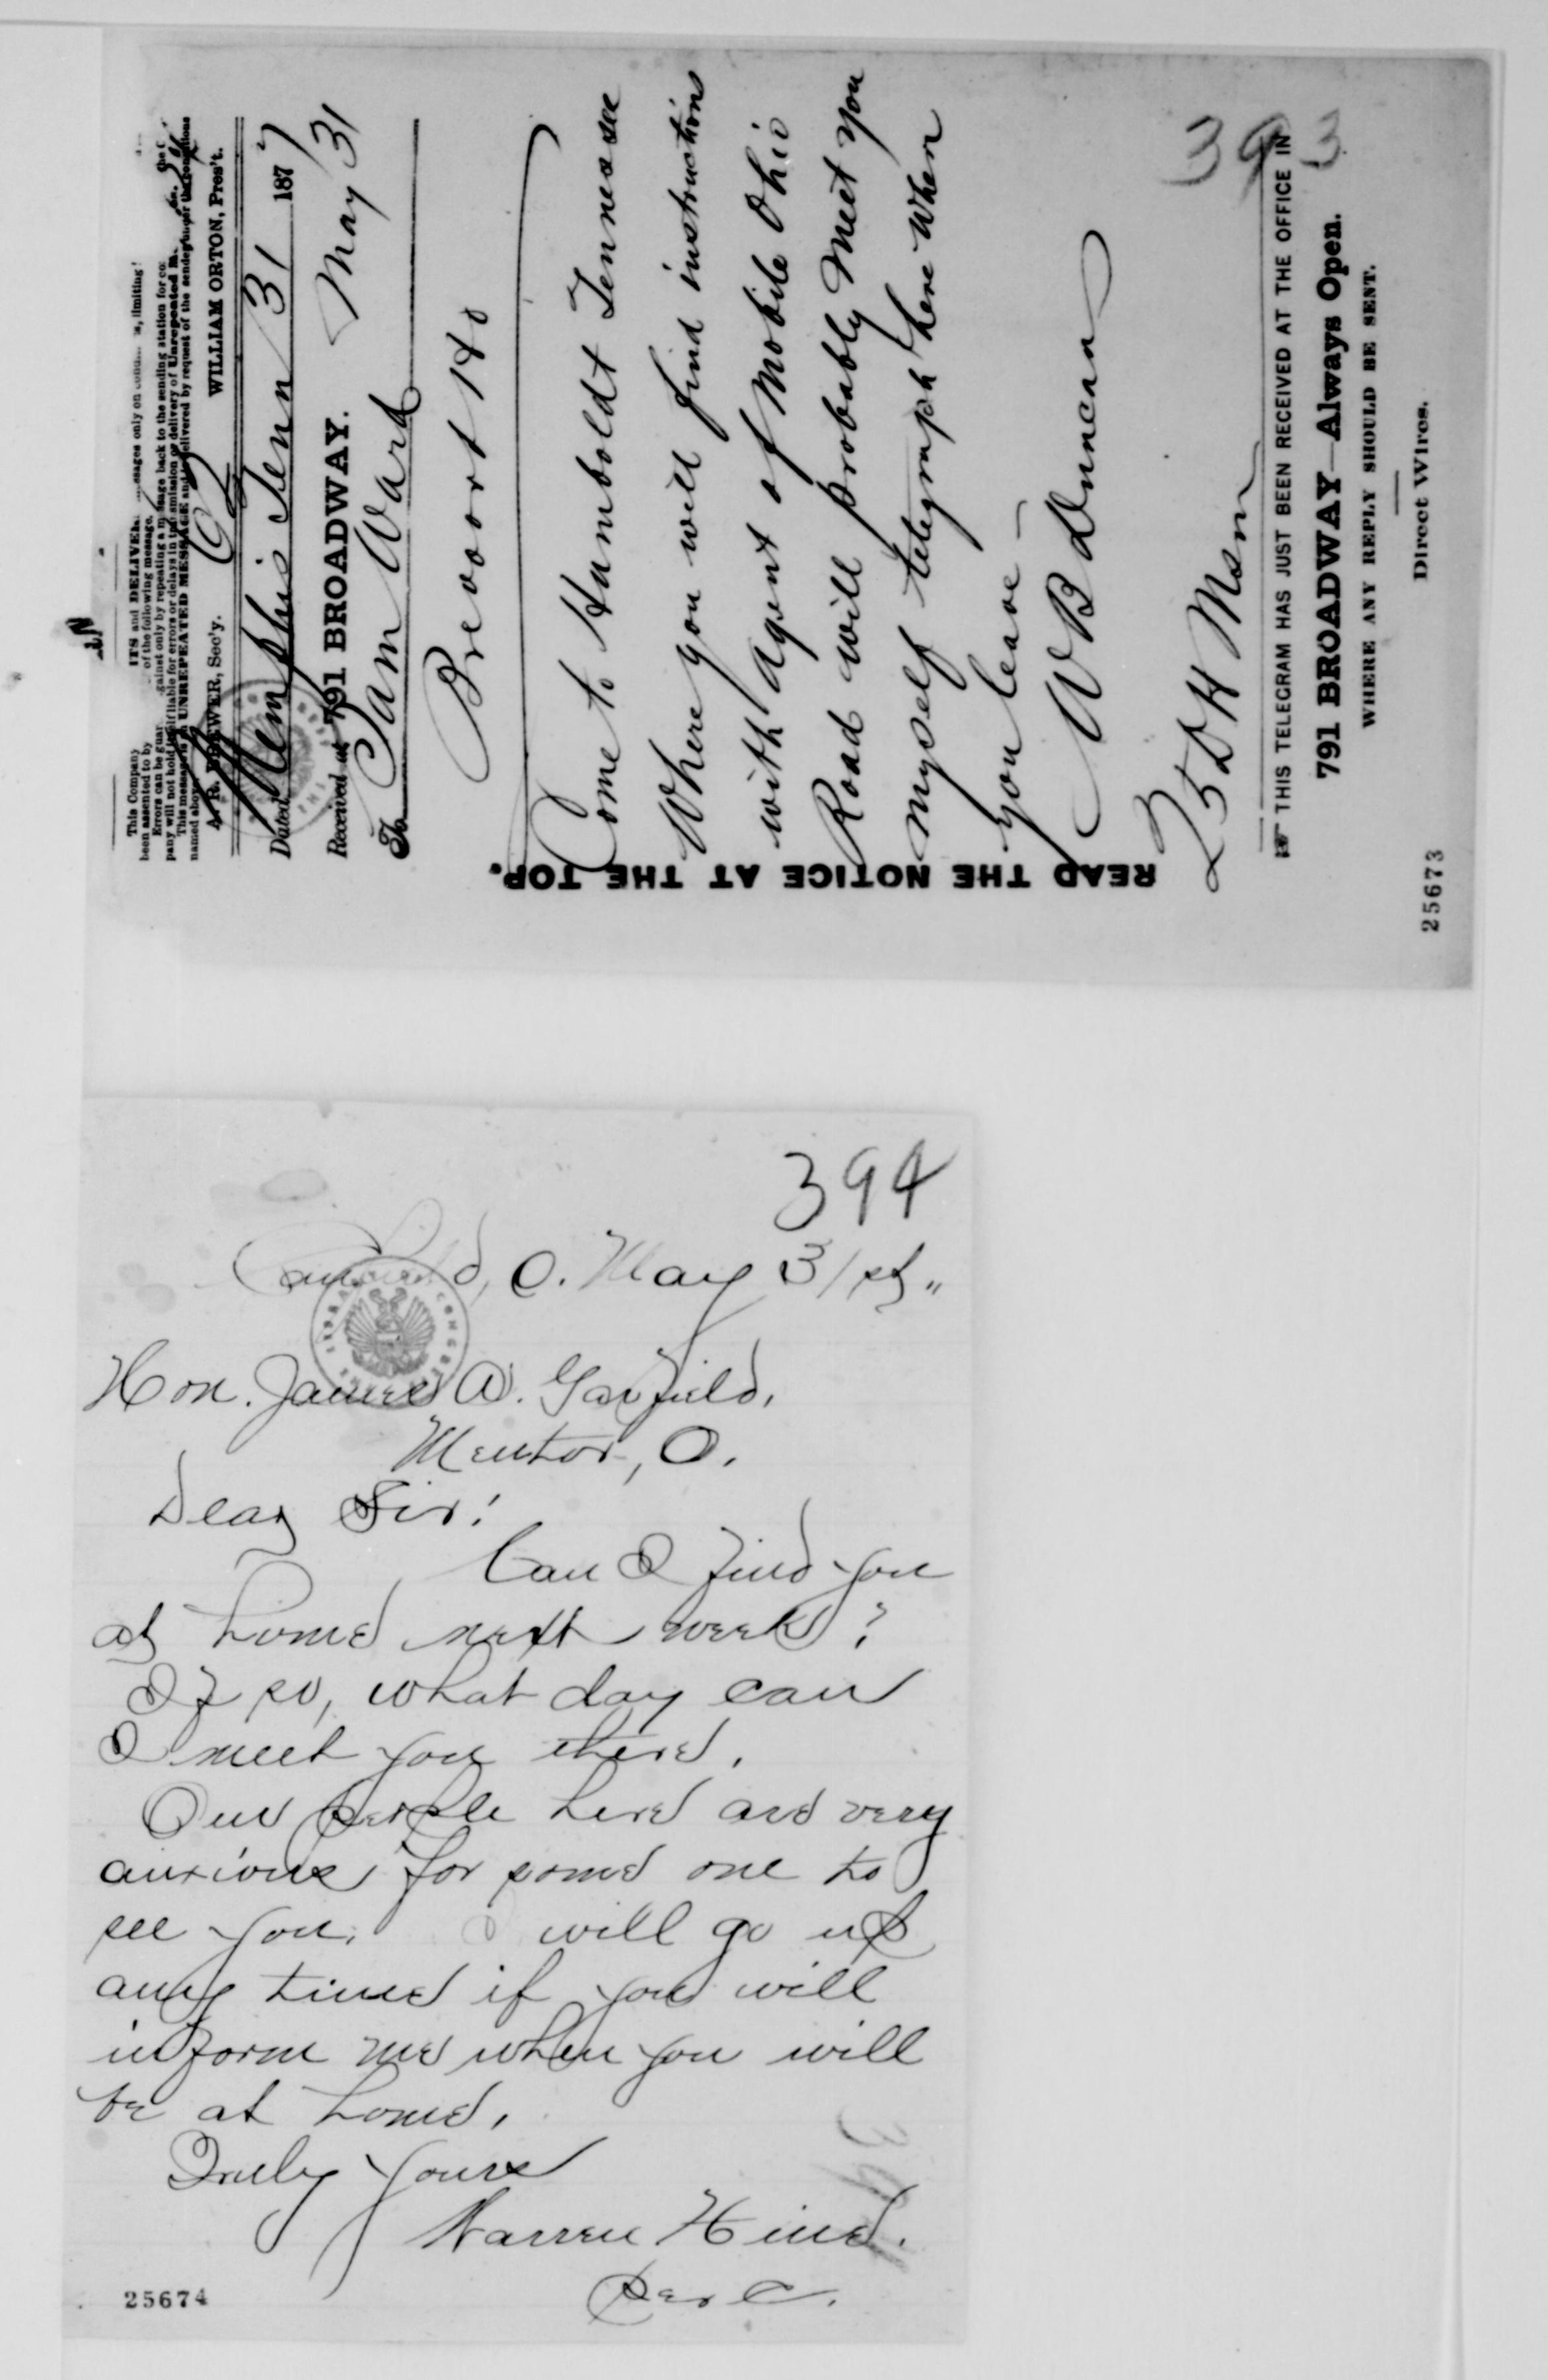 This Company
ITS and DELIVER messages only on conditions, limiting
been assented to by
of the following message.
Errors can be guar against only by repeating a message back to the sending station for co
pany will not hold itself liable for errors or delays in transmission or delivery of Unrepeated
This message is an UNREPEATED MESSAGE and is delivered by request of the sender under the conditions
named above.
A. R. BREWER, Sec'y.
WILLIAM ORTON, Pres't.
Dated Memphis Tenn 31 1877
Received at 791 BROADWAY. May 31
To Sam Ward
Brevoort Ho
Come to Humboldt Tennessee
Where you will find instructions
with agent of Mobile Ohio
Road will probably Meet you
myself telegraph there when
you leave —
W B Duncan
25 DH
393
READ THE NOTICE AT THE TOP.
☞ THIS TELEGRAM HAS JUST BEEN RECEIVED AT THE OFFICE IN
791 BROADWAY—Always Open.
WHERE ANY REPLY SHOULD BE SENT.
Direct Wires.
25673
394
Canfield, O. May 31st.
Hon. James A. Garfield,
Mentor, O.
Dear Sir:
Can I find you
at home next week?
If so, what day can
I meet you there.
Our people here are very
anxious for some one to
see you. I will go up
any time if you will
inform me when you will
be at home.
Truly Yours
Warren Hine.
Per C.
25674